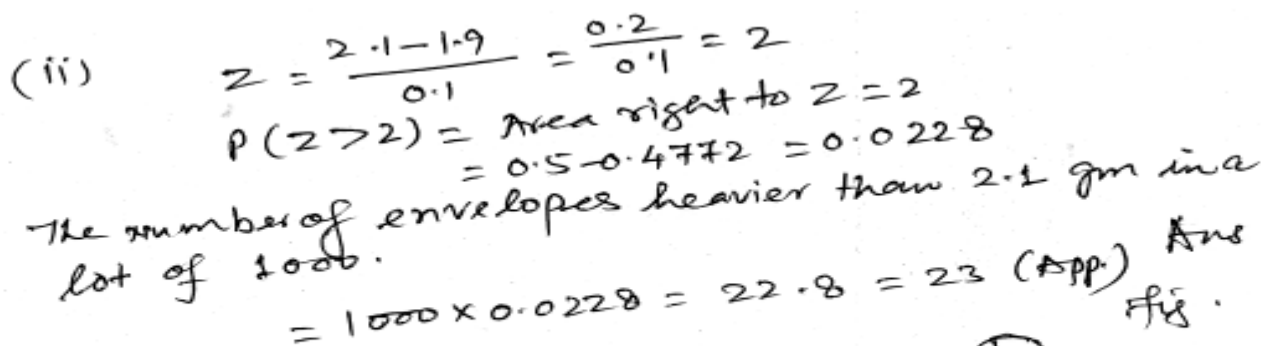 (ii) Z = (2.1-1.9)/0.1 = 0.2/0.1 = 2
P(Z>2) = Area right to Z=2
= 0.5-0.4772 = 0.0228
The number of envelopes heavier than 2.1 gm in a
lot of 1000.
= 1000 x 0.0228 = 22.8 = 23 (App.) Ans